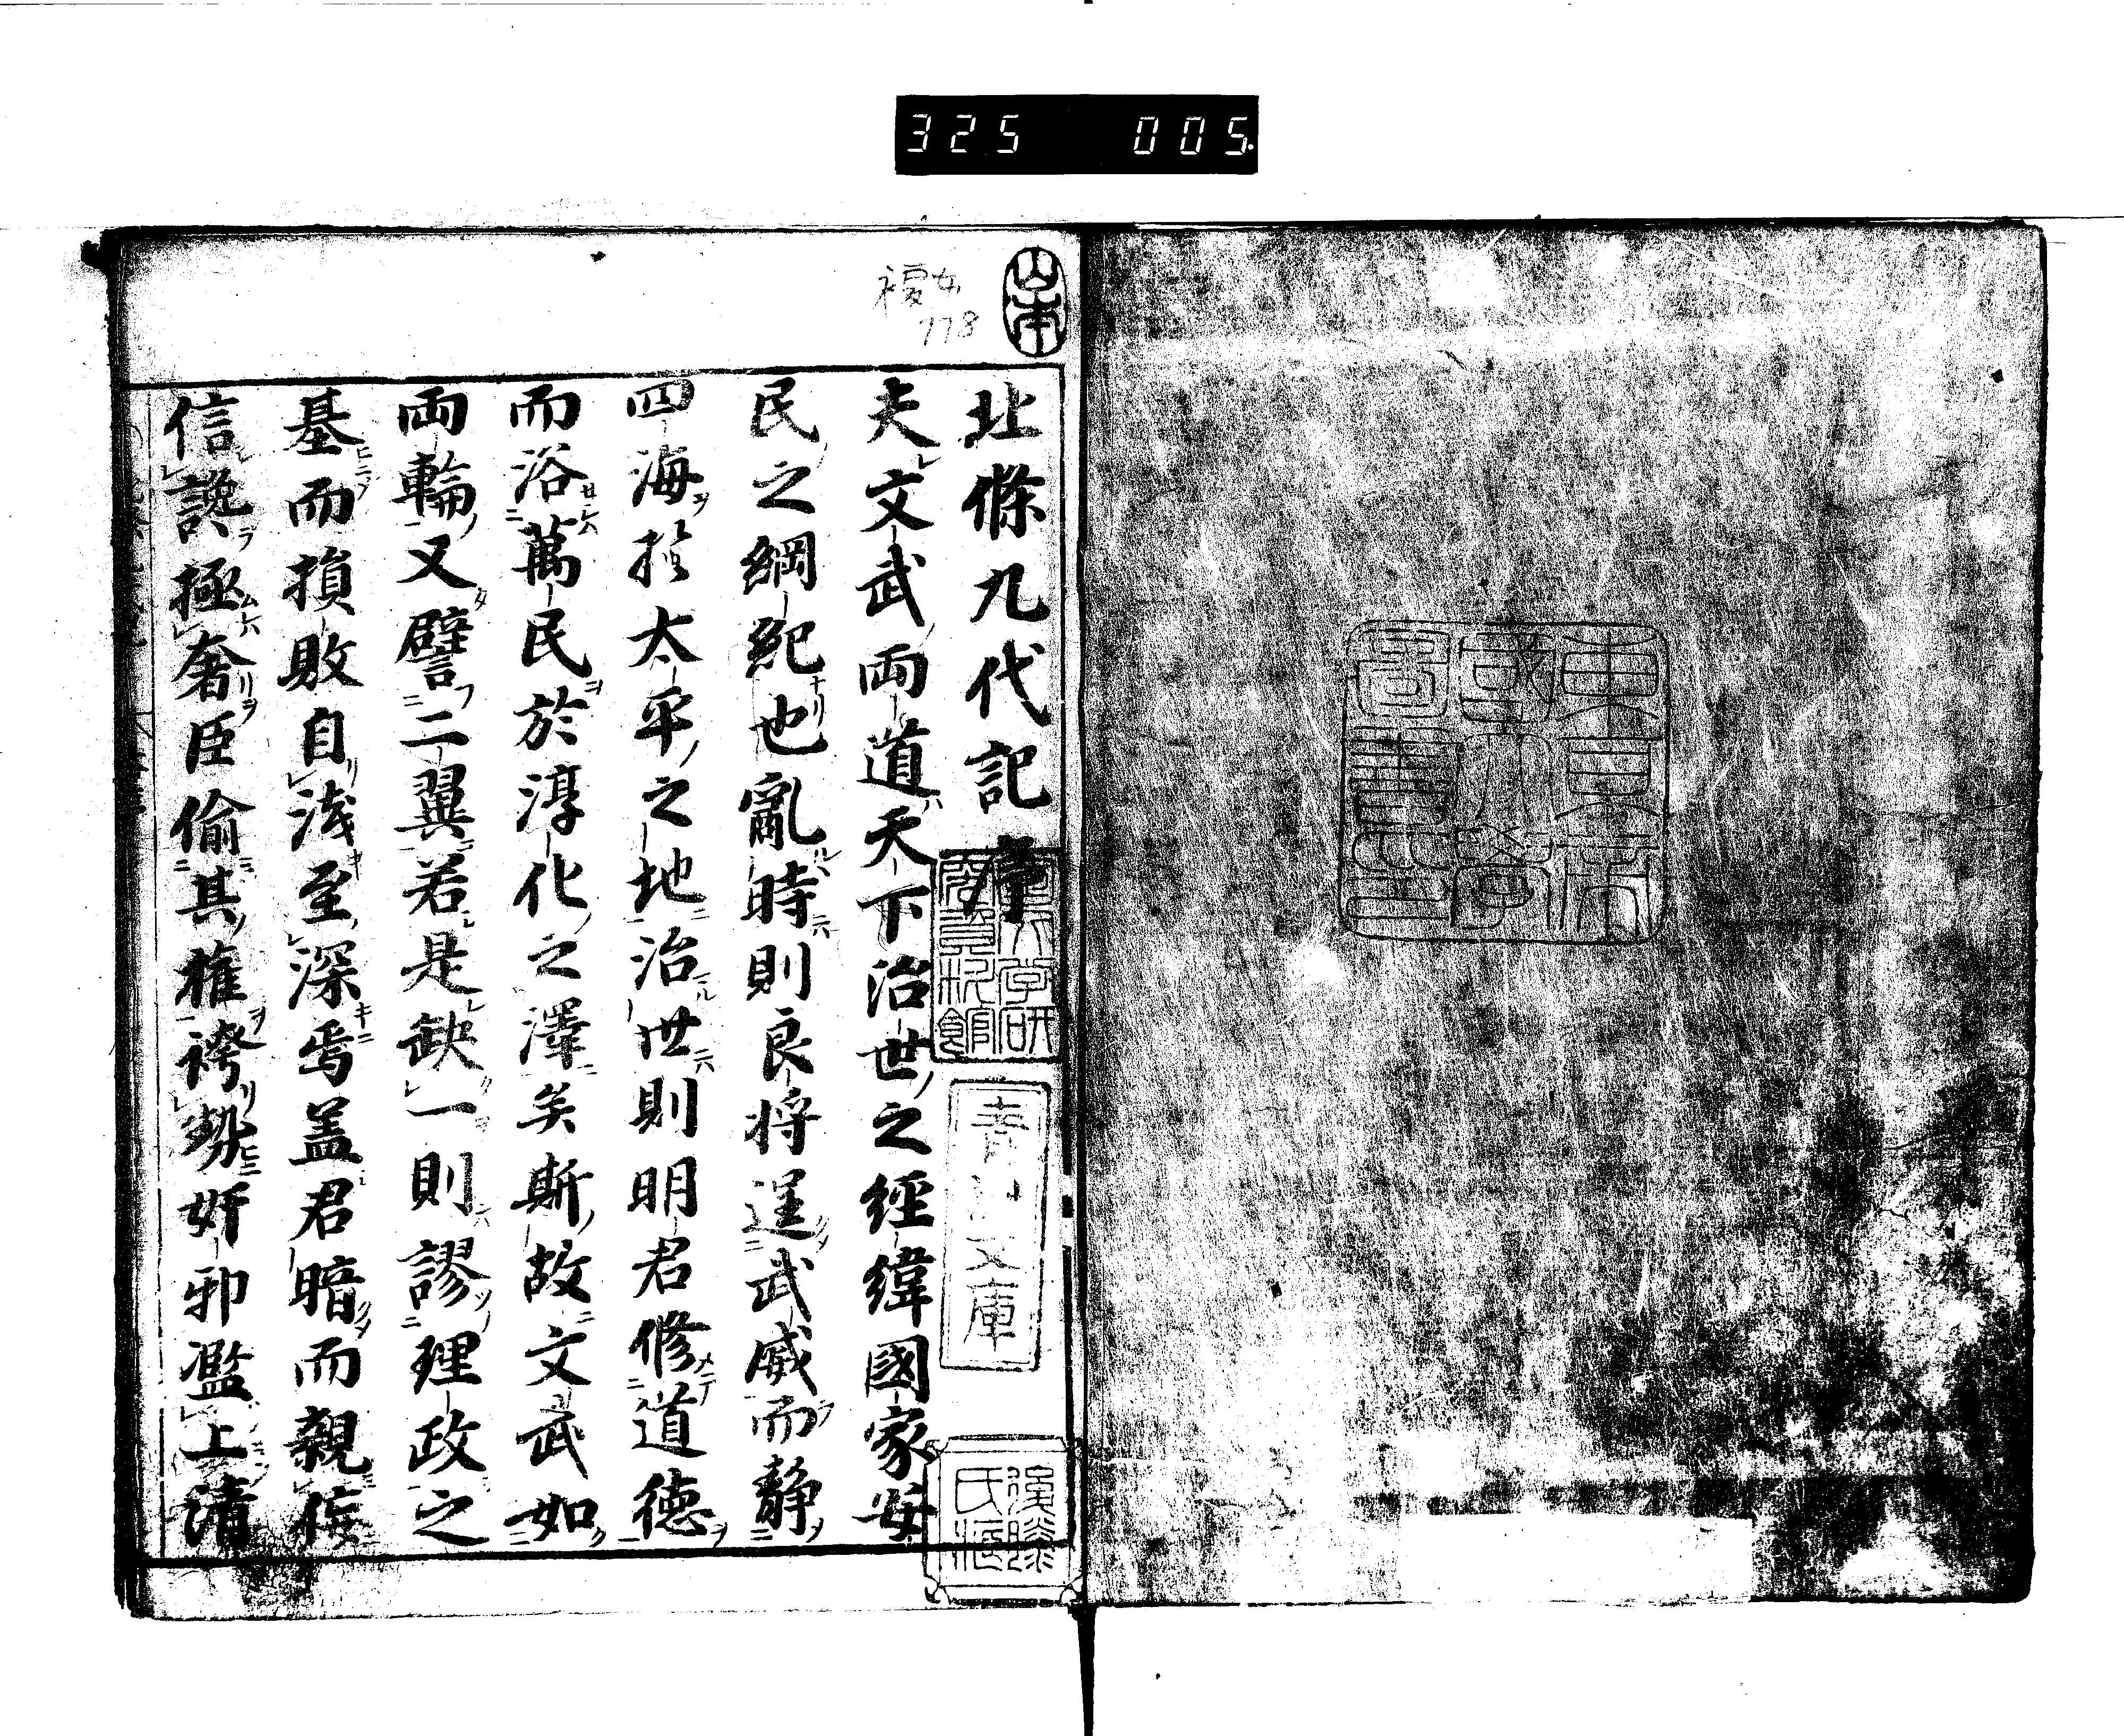 325 005.
東京帝
國大學
圖書印
山本
複女
778
北條九代記序
夫文武両道天下治世之經緯國家安
民之綱紀也亂時則良将逞武威而静
四海於太平之地治世則明君修道德
而浴萬民於淳化之澤矣斯故文武如
両輪又譬二翼若是缺一則謬理政之
基而損敗自浅至深焉盖君暗而親佞
信讒極奢臣偷其權誇勢奸邪濫上清
青洲文庫
氏